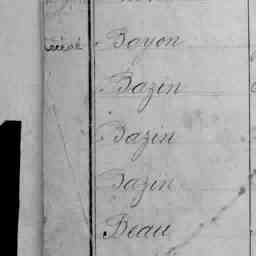 décédé Bayon
Bazin
Bazin
Bazin
Beau